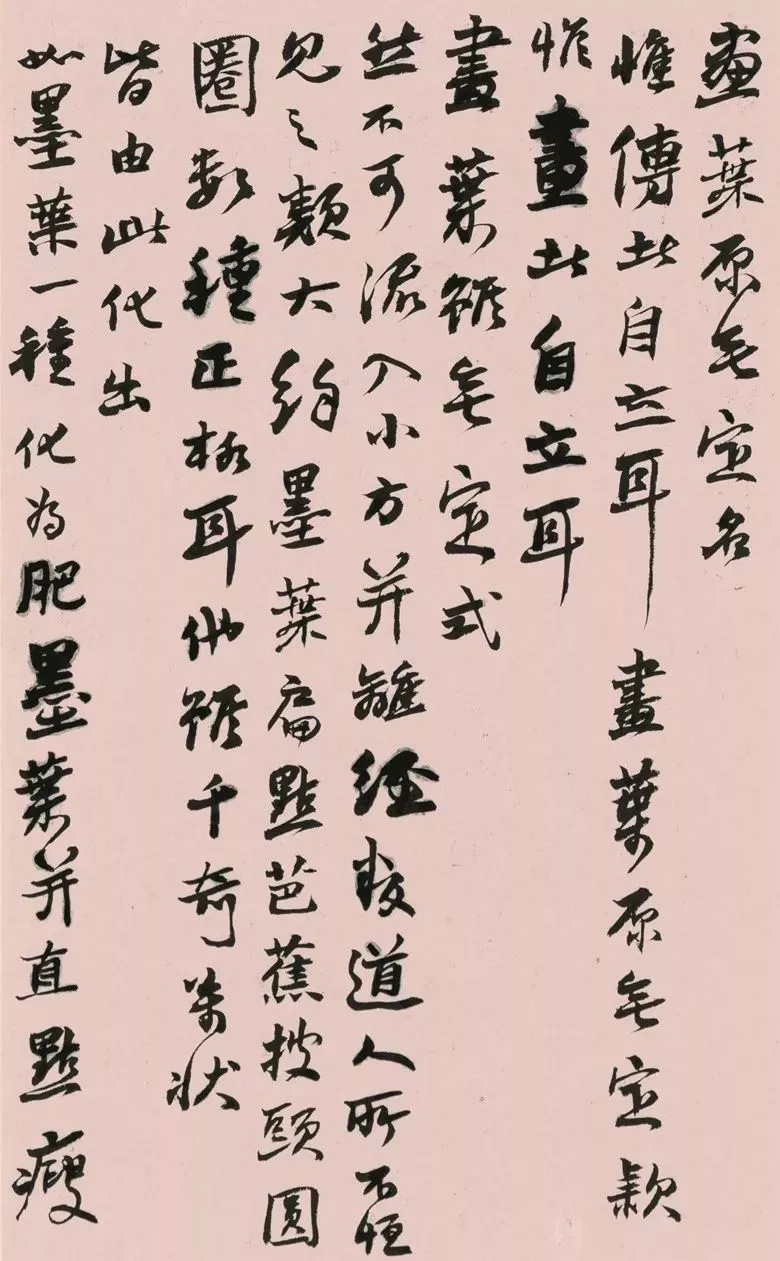 畫葉原無定名
惟傳此自立耳 畫葉原無定款
惟畫此自立耳
畫葉雖無定式
然不可流入小方并離經叛道人所不恒
見之類大約墨葉扁點芭蕉披頭圓
圈數種正格耳他雖千奇萬狀
皆由此化出
如墨葉一種化為肥墨葉并直點瘦